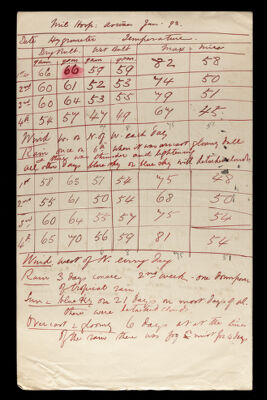 Mil Hosp. Jan. 98.
Date Hygrometer Temperature.
Dry Bulb. Wet Bulb Max = Min=
9am 9pm 9am 9pm
1st 66 66 59 59 82 58
2nd 60 61 52 53 74 50
3rd 60 64 53 55 79 51
4th 54 57 47 49 67 45
Wind W. or N. of W. each day
Rain once on 6th when it was almost gloomy, all
day & there was thunder and lightening
all other days blue sky or blue sky with detached clouds
1st 58 65 51 54 75 48
2nd 55 61 50 54 68 50
3rd 60 64 55 57 75 54
4th 65 70 56 59 81 54
Wind west of N. every day
Rain 3 days 2nd week - one downpour
of tropical rain
Sun = blue sky on 21 days on most days of all
there were detached clouds
Overcast & gloomy 6 days at at the time
of the rain there was fog & mist for 4 days